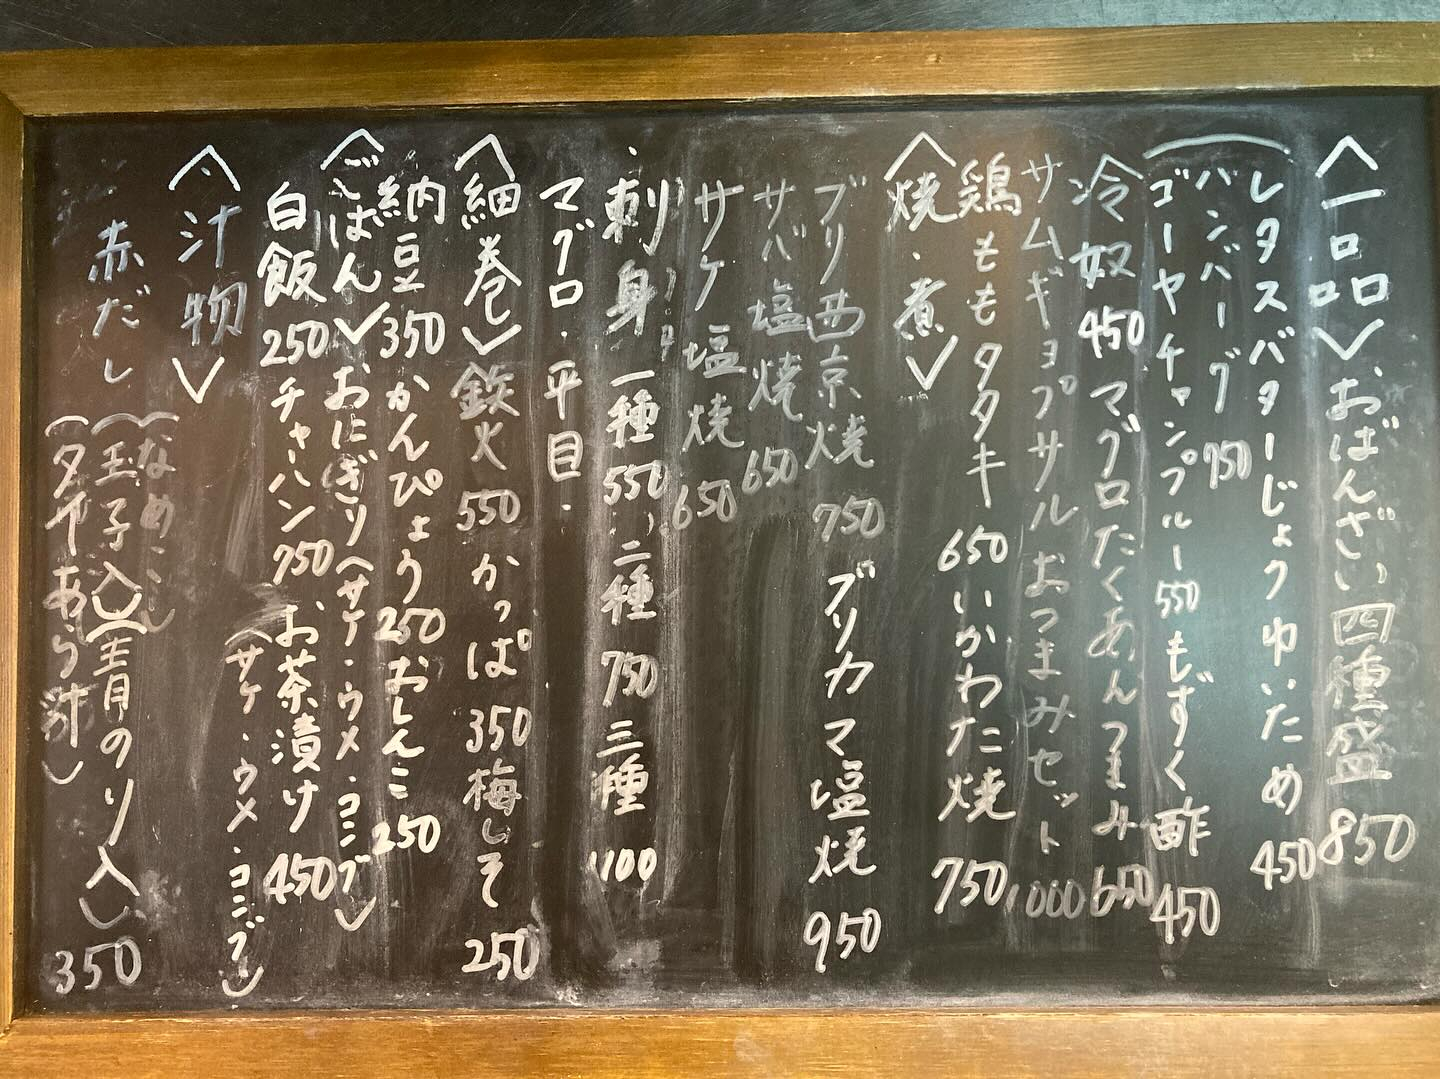 <一品>、おばんざい四種盛 850
レタスバターじょうゆいため 450
ハンバーグ 750
ゴーヤチャンプルー 550 もずく酢 450
冷奴 450 マグロたくあんつまみ 650
サムギョプサルおつまみセット 1000
鶏ももタタキ 650 いかわた焼 750
<焼・煮>
ブリ西京焼 750 ブリカマ塩焼 950
サバ塩焼 650
サケ塩焼 650
刺身 一種 550 二種 750 三種 1100
マグロ・平目・
<細巻> 鉄火 550 かっぱ 350 梅しそ 250
納豆 350 かんぴょう 250 おしんこ 250
<ごはん> おにぎり(サケ・ウメ・コンブ)
白飯 250 チャーハン 750 お茶漬け 450
(サケ・ウメ・コンブ)
<汁物>
(なめこ
赤だし (玉子入) (青のり入) 350
あら汁)